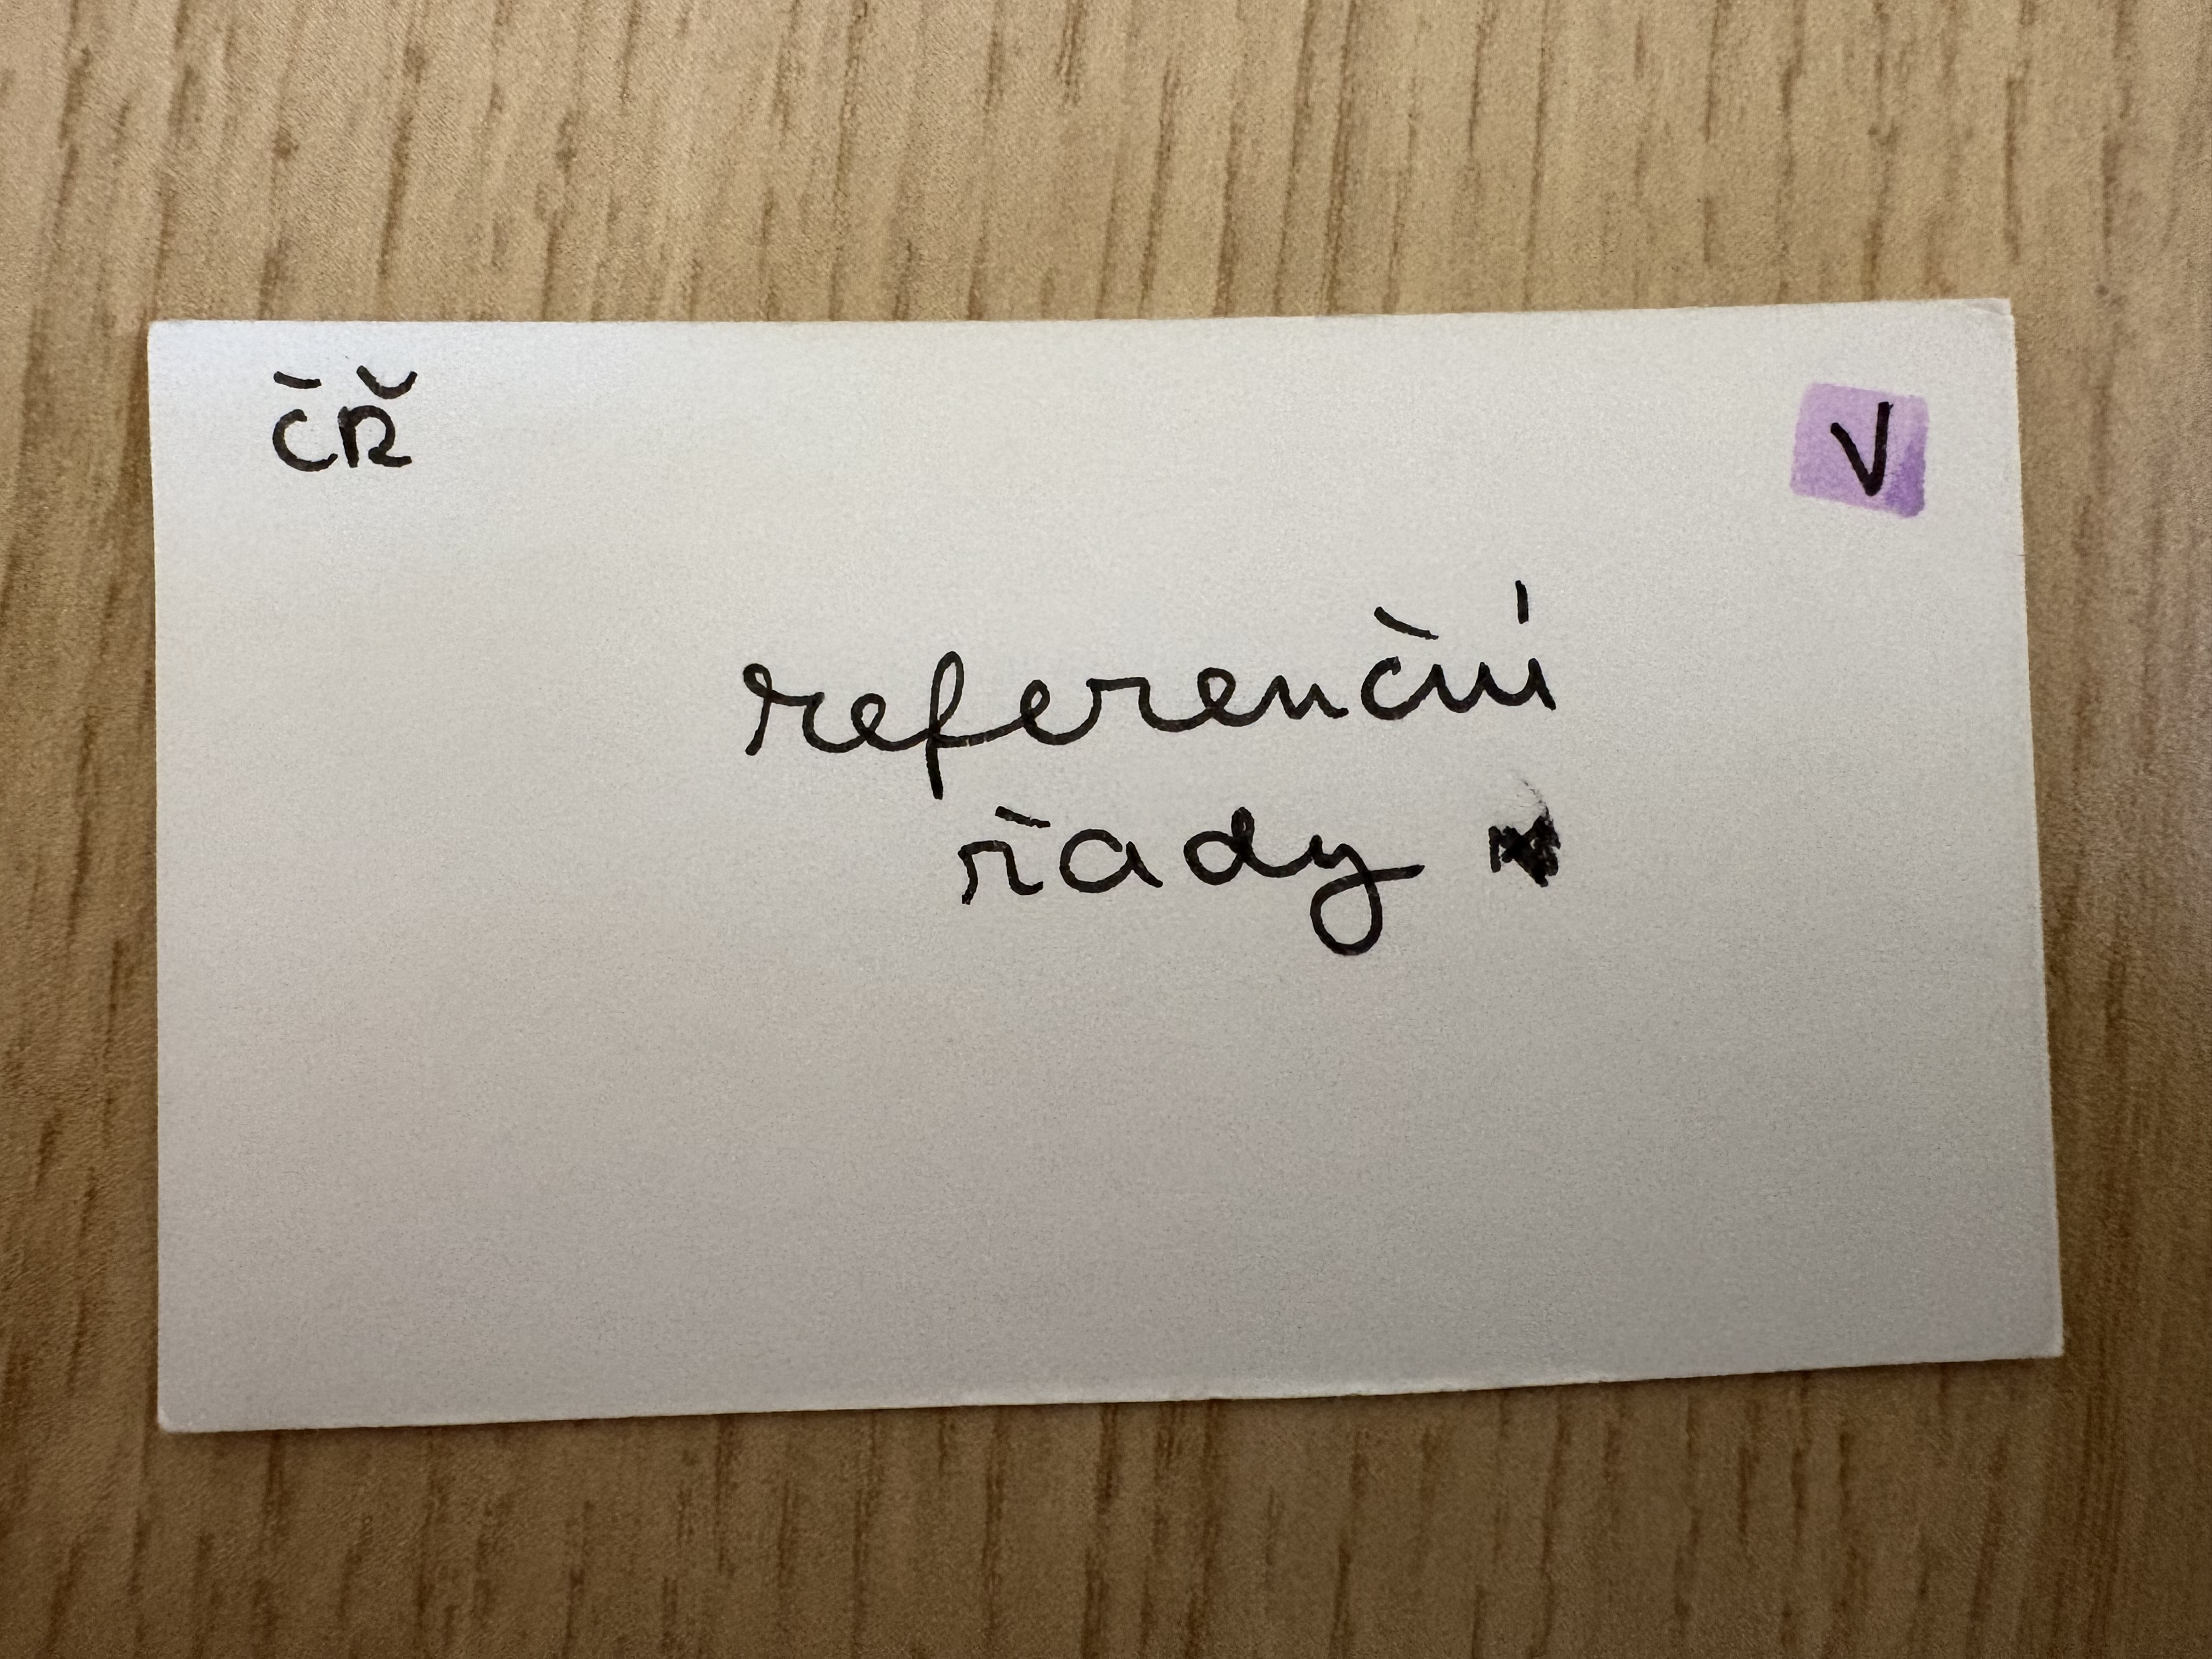 ČŘ
V
referenční
řady